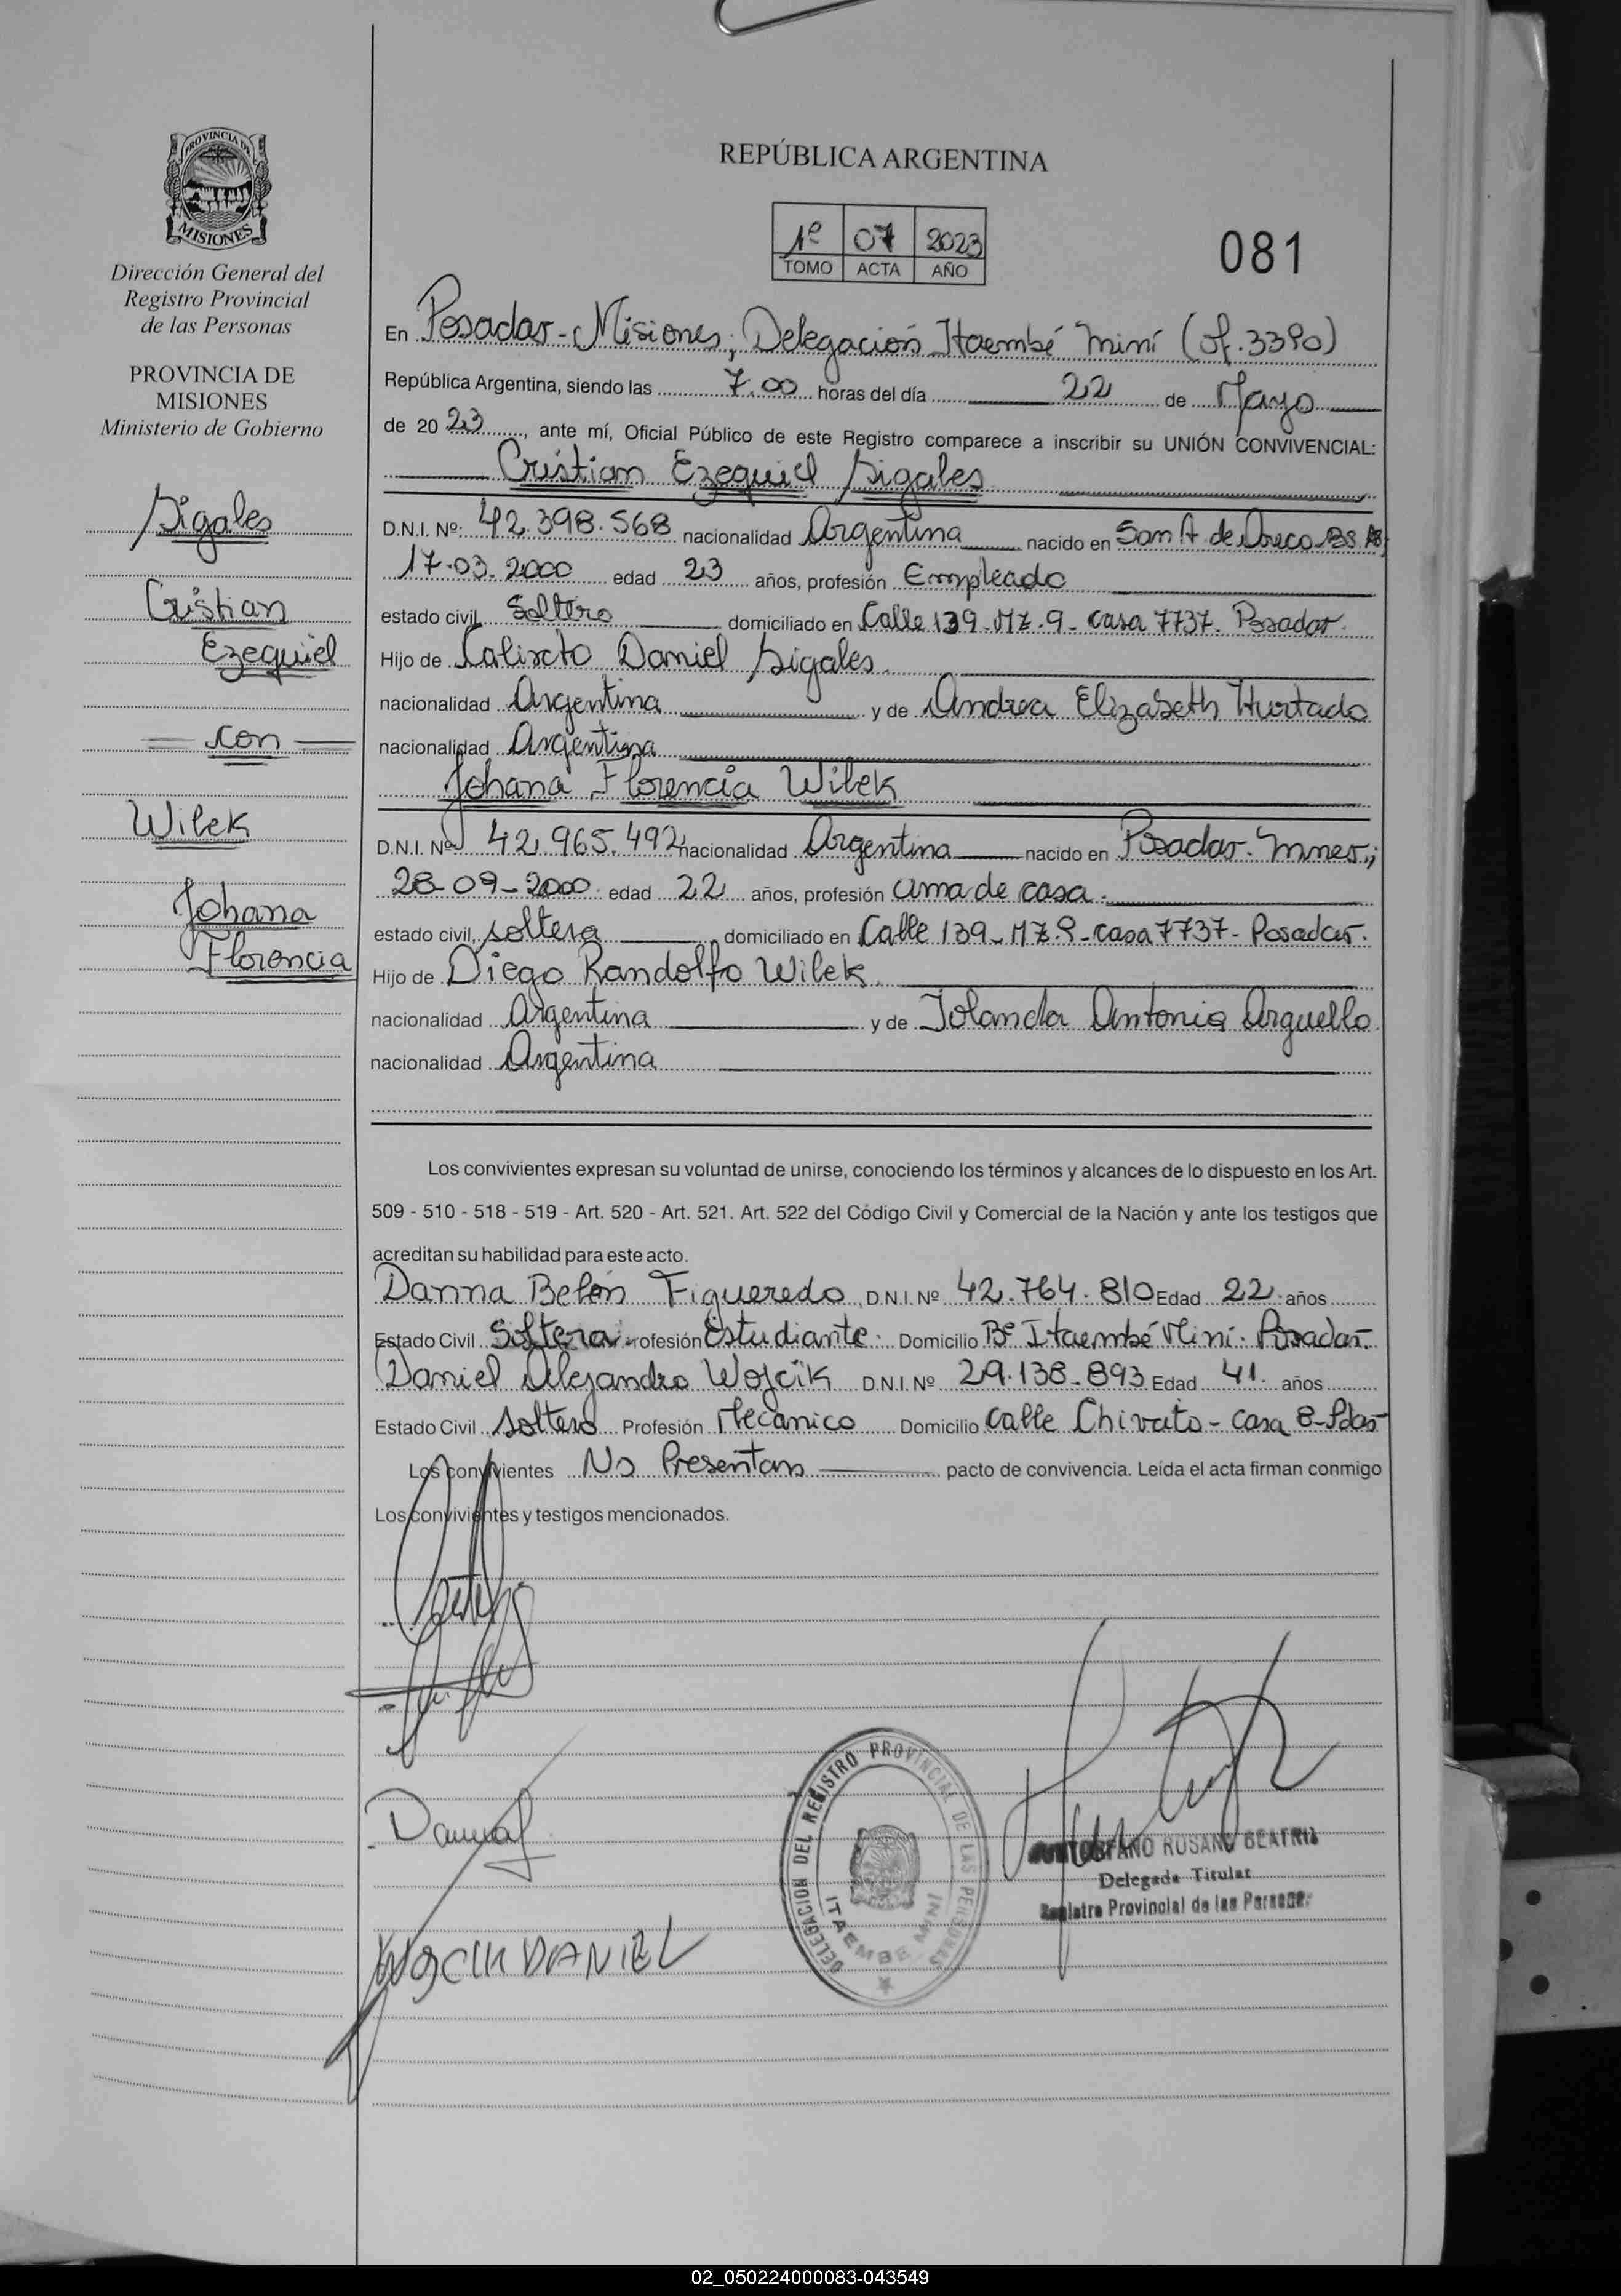 REPÚBLICA ARGENTINA
PROVINCIA DE
MISIONES
Dirección General del
Registro Provincial
de las Personas
PROVINCIA DE
MISIONES
Ministerio de Gobierno
Sigales
Cristian
Ezequiel
con
Wilek
Johana
Florencia
1º 07 2023
TOMO ACTA AÑO
081
En Posadas-Misiones; Delegación Itaembé Miní (of. 3390)
República Argentina, siendo las 7.00 horas del día 22 de Mayo
de 2023, ante mí, Oficial Público de este Registro comparece a inscribir su UNIÓN CONVIVENCIAL:
Cristian Ezequiel Sigales
D.N.I. Nº: 42.398.568 nacionalidad Argentina nacido en San A. de Areco-Bs As;
17-03-2000 edad 23 años, profesión Empleado
estado civil Soltero domiciliado en Calle 139-Mz.9-casa 7737. Posadas.
Hijo de Calixto Daniel Sigales.
nacionalidad Argentina y de Andrea Elizabeth Hurtado
nacionalidad Argentina
Johana Florencia Wilek
D.N.I. Nº 42.965.492 nacionalidad Argentina nacido en Posadas-Mnes.;
28-09-2000. edad 22 años, profesión ama de casa.
estado civil, soltera domiciliado en Calle 139-Mz.9-casa 7737-Posadas.
Hijo de Diego Randolfo Wilek.
nacionalidad Argentina y de Iolanda Antonia Arguello
nacionalidad Argentina
Los convivientes expresan su voluntad de unirse, conociendo los términos y alcances de lo dispuesto en los Art.
509 - 510 - 518 - 519 - Art. 520 - Art. 521. Art. 522 del Código Civil y Comercial de la Nación y ante los testigos que
acreditan su habilidad para este acto.
Danna Belén Figueredo D.N.I. Nº 42.764.810 Edad 22 años
Estado Civil Soltera Profesión Estudiante. Domicilio Bº Itaembé Miní. Posadas.
Daniel Alejandro Wojcik D.N.I. Nº 29.138.893 Edad 41. años
Estado Civil soltero Profesión Mecánico Domicilio calle Chivato-casa 8-Pdas-
Los convivientes No Presentan pacto de convivencia. Leída el acta firman conmigo
Los convivientes y testigos mencionados.
Danna
DELEGACION DEL REGISTRO PROVINCIAL DE LAS PERSONAS
ITAEMBE MINI
ROSANA BEATRIZ
Delegada Titular
Registro Provincial de las Personas
WOJCIK DANIEL
02_050224000083-043549